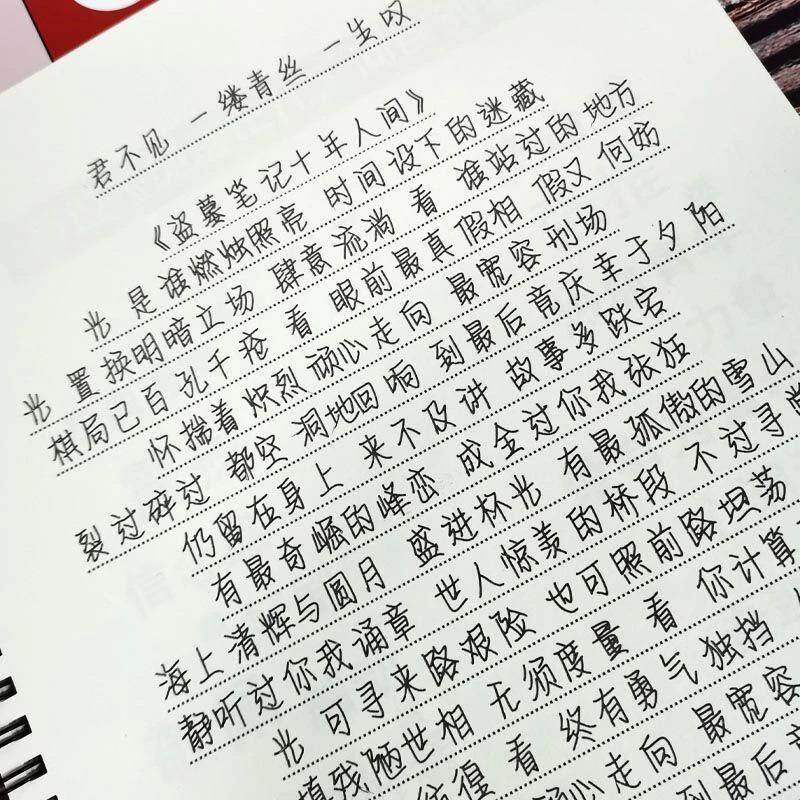 君不见 一缕青丝 一生叹
《盗墓笔记十年人间》
光 是谁燃烛照亮 时间设下的迷藏
光 置换明暗立场 肆意流淌 看 谁站过的地方
棋局已百孔千疮 看 眼前最真假相 假又何妨
怀揣着炽烈 顽心走向 最宽容刑场
裂过碎过 都空 洞地回响 到最后竟庆幸于夕阳
仍留在身上 来不及讲 故事多跌宕
有最奇崛的峰峦 成全过你我张狂
海上清辉与圆月 盛进杯光 有最孤傲的雪山
静听过你我诵章 世人惊羡的桥段 不过寻
光 可寻来路艰险 也可照前路坦荡
残陋世相 无须度量 看 你计算
徨 看 终有勇气独挡
心走向 最宽容
到最后